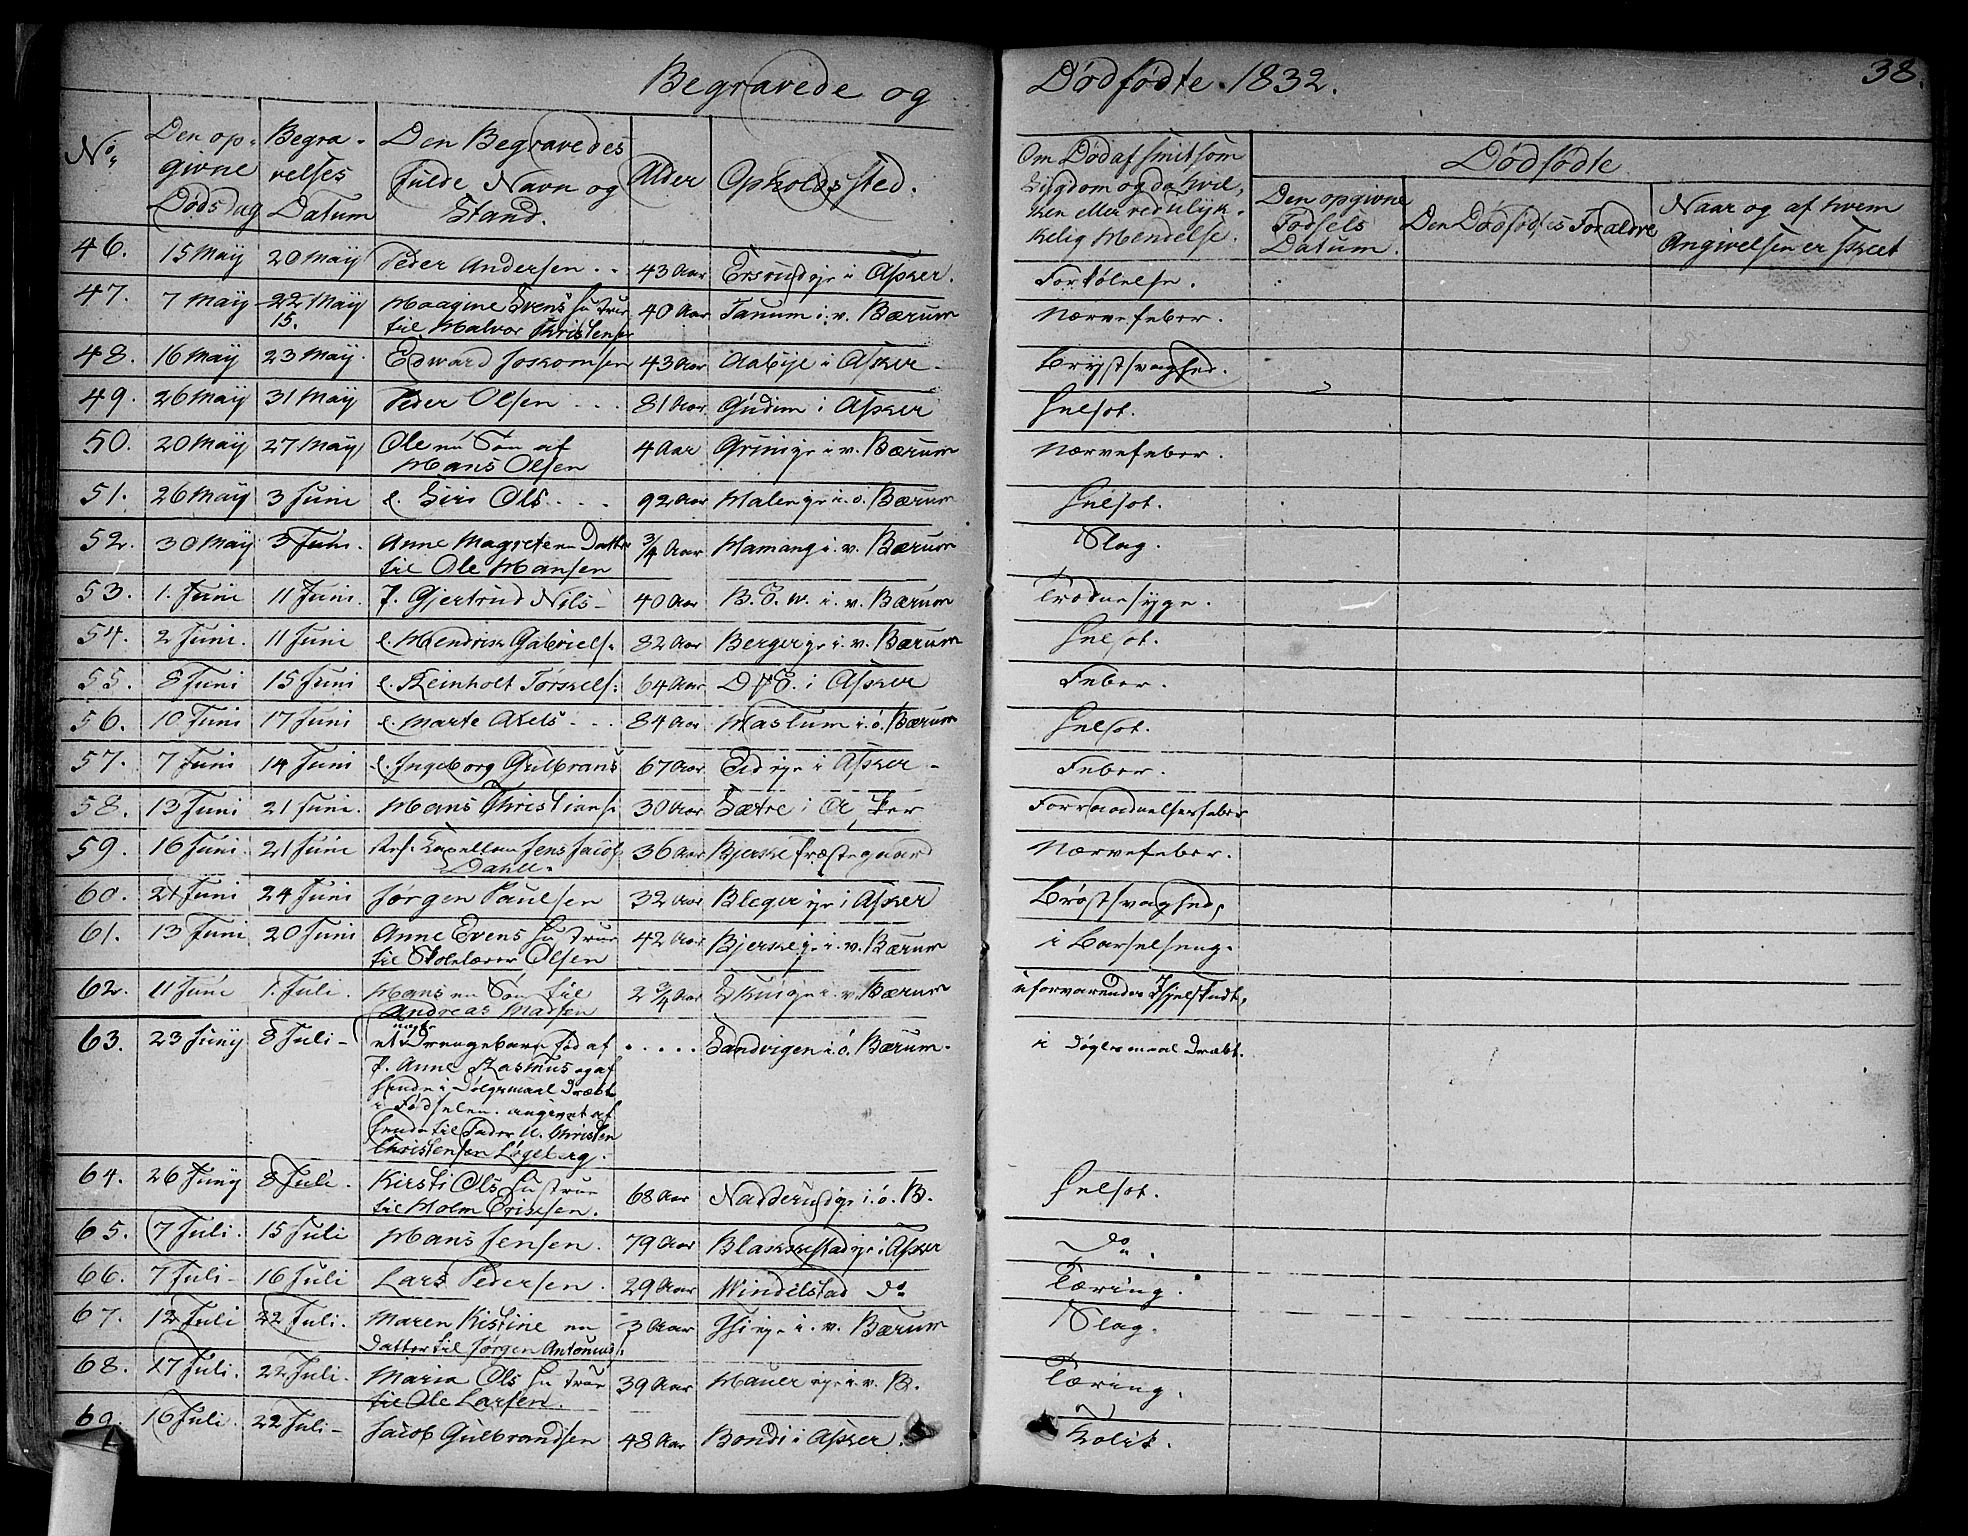 Begravede og Dødfødte. 1832. 38.
No. Den opgivne Dødsdag Begravelses Datum Den Begravedes fulde Navn og Stand. Alder Opholdssted. Om Død af smitsom Sygdom og da hvilken eller ved ulykkelig Hendelse. Dødfødte
Den opgivne Fødsels Datum. Den Dødfødtes Forældre Naar og af hvem Angivelsen er skeet
46. 15 May 20 May Peder Andersen .. 43 Aar Ersrudeje i Asker. Forkølelse.
47. 7 May 22 May Svens Hustrue 40 Aar Tanum i v. Bærum Nervefeber.
15. til Halvor Christensen
48. 16 May 23 May Edward 43 Aar Aabye i Asker Brystsvaghed.
49. 26 May 31 May Peder Olsen ... 81 Aar Gudim i Asker Helsot.
50. 20 May 27 May Ole en Søn af 4 Aar Grinieje i v. Bærum Nervefeber.
Hans Olsen
51. 26 May 3 Juni e. Siri Ols . . . 92 Aar i ø. Bærum Helsot.
52. 30 May 3 Juni. Anne Magrete en Datter 3/4 Aar Hamang i. v. Bærum Slag.
til Ole Hansen
53. 1. Juni 11 Juni. P. Gjertrud Nils- 40 Aar B. V. i. v. Bærum
54. 2 Juni. 11 Juni e. Hendrik Gabriels. 82 Aar Berger eje i. v. Bærum Helsot.
55. 8 Juni 15 Juni e. Reinholt Torkels: 64 Aar i Asker Feber.
56. 10 Juni 17 Juni e. Marte Axels- .. 84 Aar Haslum i. ø. Bærum Helsot.
57. 7 Juni 14 Juni e. Ingeborg Gulbrans 67 Aar Eid eje i Asker - Feber.
58. 13 Juni 21 Juni. Hans Christians: 30 Aar Sætre i Asker Forraadnelsesfeber
59. 16 Juni. 21 Juni Res. Capellan Jens Jacob 36 Aar Bjerke Præstegaard Nervefeber.
Dahll.
60. 21 Juni 24 Juni Jørgen Paulsen 32 Aar Bleger eje i Asker Brøstsvaghed,
61. 13 Juni 20 Juni Anne Evens Hustrue 42 Aar Bjerkeeje i. v. Bærum i Barselseng.
til Skolelærer Olsen
62. 11 Juni 1. Juli. Hans en Søn til 2 3/4 Aar Skuieje i. v. Bærum uforvarendes Ihjelstødt,
Andreas Madsen
63. 23 Juny 8 Juli - et uægte Drengebarn fød af . . . . . Sandvigen i. ø. Bærum. i Dølgsmaal Dræbt.
P. Anne Rasmus og af
hende i Dølgsmaal Dræbt
i Fødselen. angivet af
hende til Fader U. Christen
Christensen Løgeberg.
64. 26 Juny 8 Juli. Kirsti Ols Hustrue 68 Aar Nadderudeje i. ø. B. Helsot.
til Holm Erissen.
65. 7 Juli. 15 Juli Hans Jensen. 79 Aar Blakkestadeje i Asker Do.
66. 7 Juli- 16 Juli Lars Pedersen. 29 Aar Windelstad Do Tæring.
67. 12 Juli 22 Juli. Maren Kistine en 3 Aar i. v. Bærum Slag.
Datter til Jørgen Antonius:
68. 17 Juli. 22 Juli. Maria Ols Hustrue 39 Aar Hauer eje i. v. B. Tæring.
til Ole Larsen.
69. 16 Juli. 22 Juli- Jacob Gulbrandsen 48 Aar Bondi i Asker. Kolik.